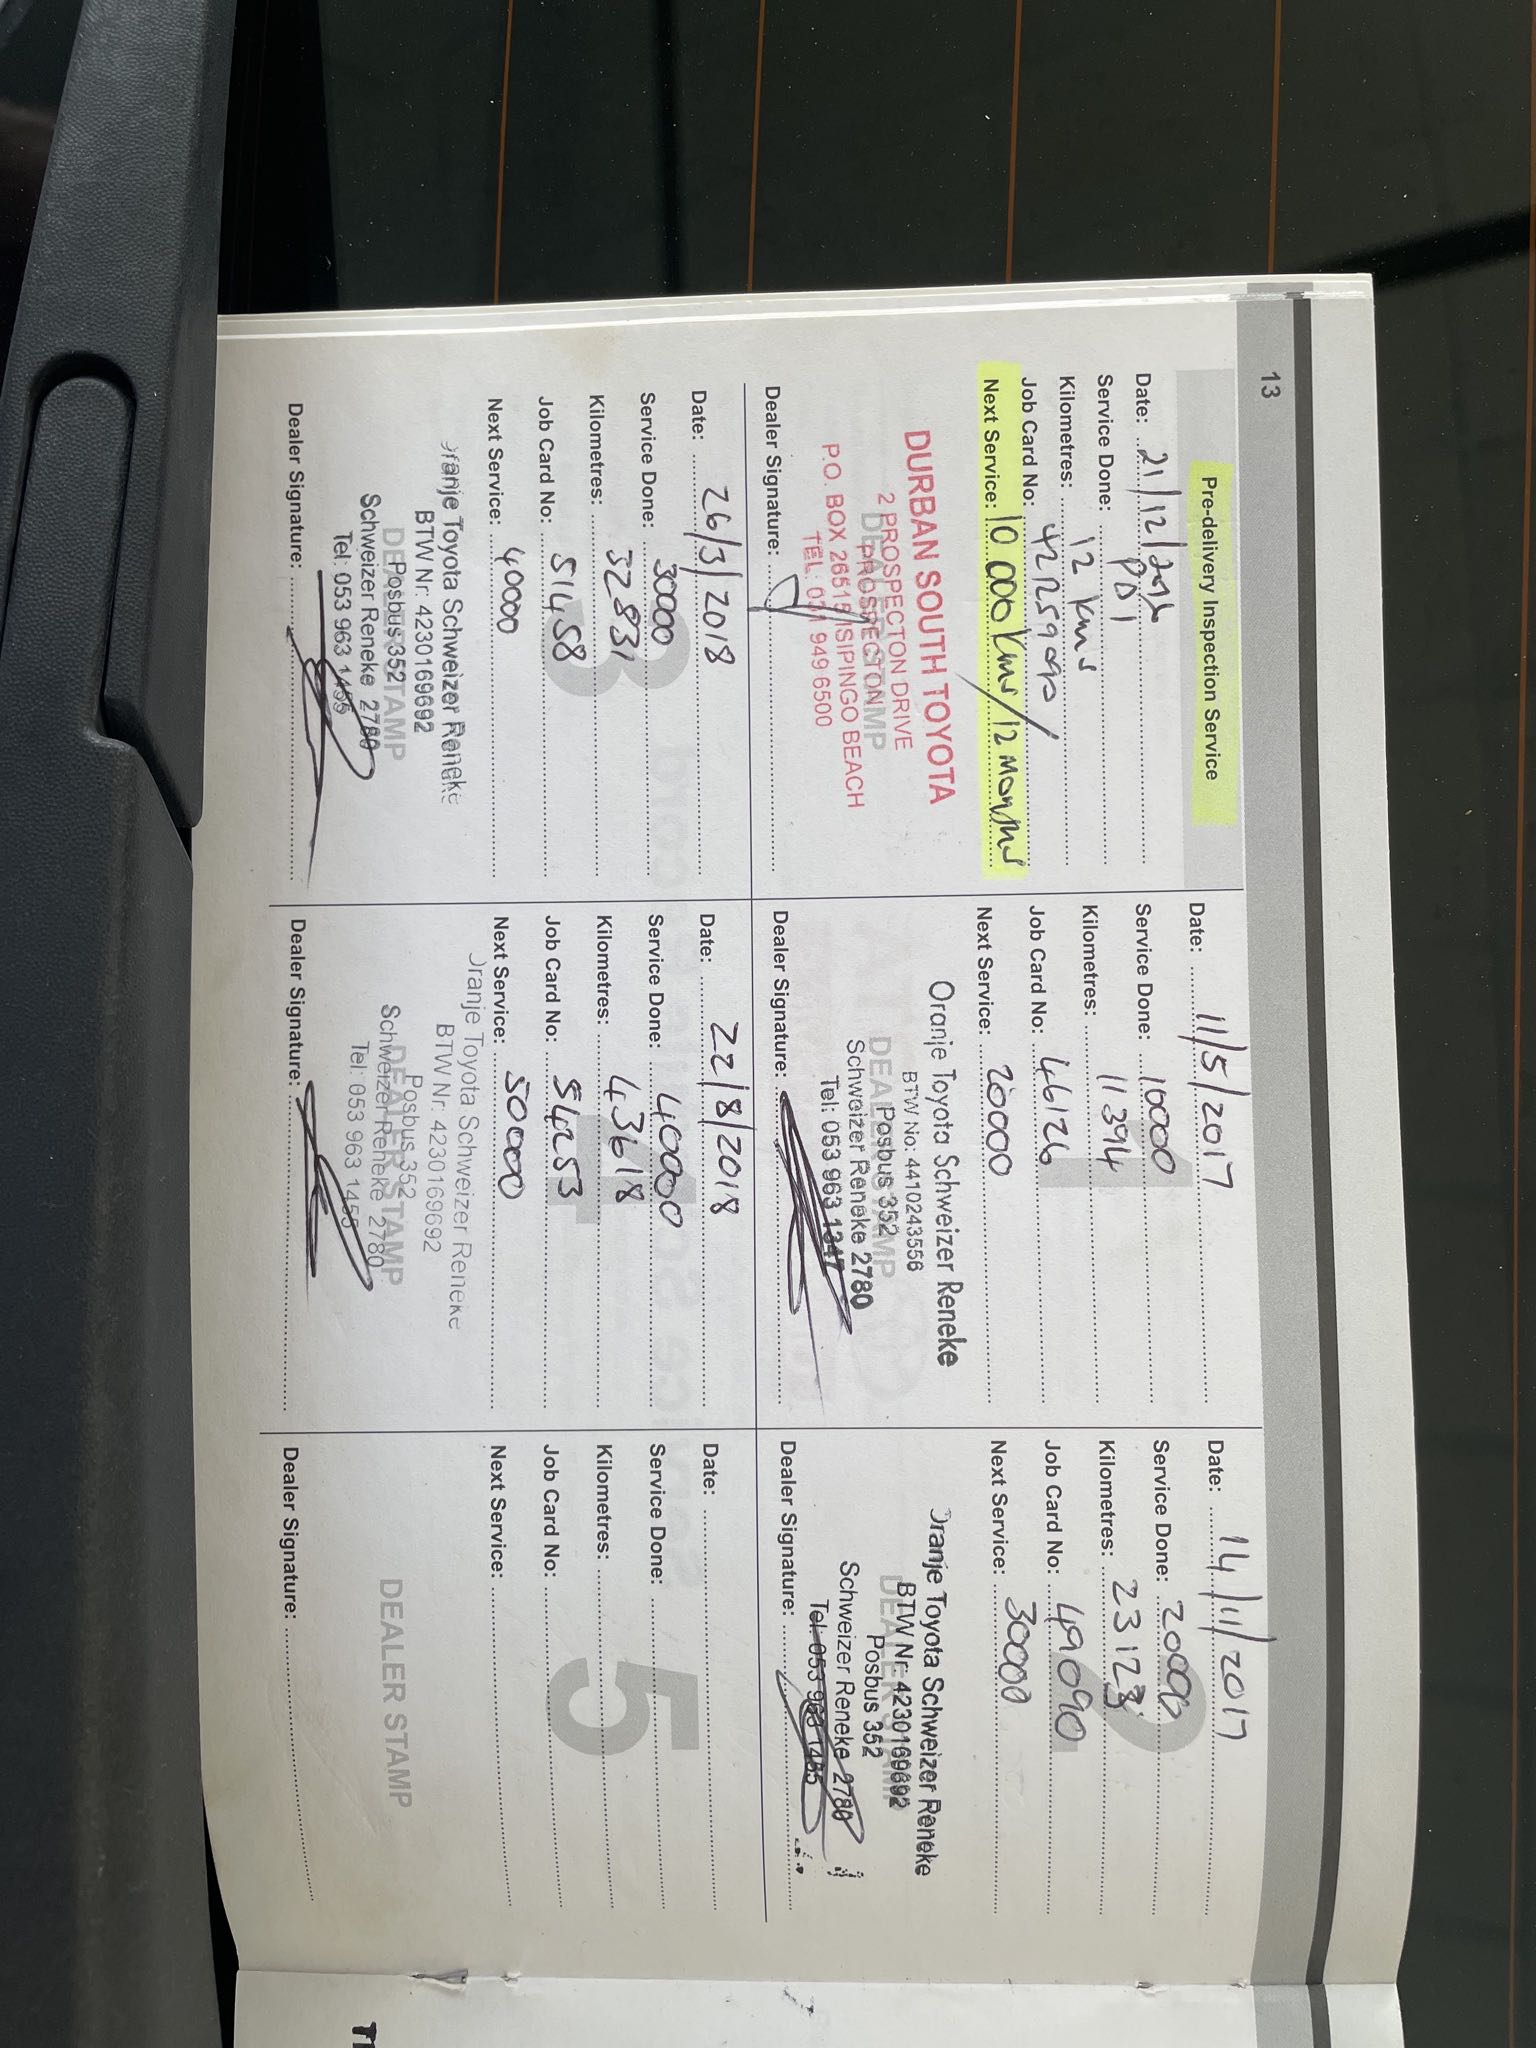 13
Pre-delivery Inspection Service
Date: 21/12/2016
Service Done: PDI
Kilometres: 12 kms
Job Card No:
Next Service: 10 000 kms / 12 months
DURBAN SOUTH TOYOTA
2 PROSPECTON DRIVE
PROSPECTON
DEALER STAMP
P.O. BOX 26515 ISIPINGO BEACH
TEL: 031 949 6500
Dealer Signature:
Date: 11/5/2017
Service Done: 10000
Kilometres: 11394
Job Card No: 46126
Next Service: 20000
1
Oranje Toyota Schweizer Reneke
BTW No: 4410243556
Posbus 352
DEALER STAMP
Schweizer Reneke 2780
Tel: 053 963 1347
Dealer Signature:
Date: 14/11/2017
Service Done: 20000
Kilometres: 23123
Job Card No: 49090
Next Service: 30000
2
Oranje Toyota Schweizer Reneke
BTW Nr: 4230169692
DEALER STAMP
Posbus 352
Schweizer Reneke 2780
Tel: 053 963 1455
Dealer Signature:
Date: 26/3/2018
Service Done: 30000
Kilometres: 32831
Job Card No: 51458
Next Service: 40000
3
Oranje Toyota Schweizer Reneke
BTW Nr: 4230169692
Posbus 352
DEALER STAMP
Schweizer Reneke 2780
Tel: 053 963 1455
Dealer Signature:
Date: 22/8/2018
Service Done: 40000
Kilometres: 43618
Job Card No: 54253
Next Service: 50000
4
Oranje Toyota Schweizer Reneke
BTW Nr: 4230169692
Posbus 352
DEALER STAMP
Schweizer Reneke 2780
Tel: 053 963 1455
Dealer Signature:
Date:
Service Done:
Kilometres:
Job Card No:
Next Service:
5
DEALER STAMP
Dealer Signature: